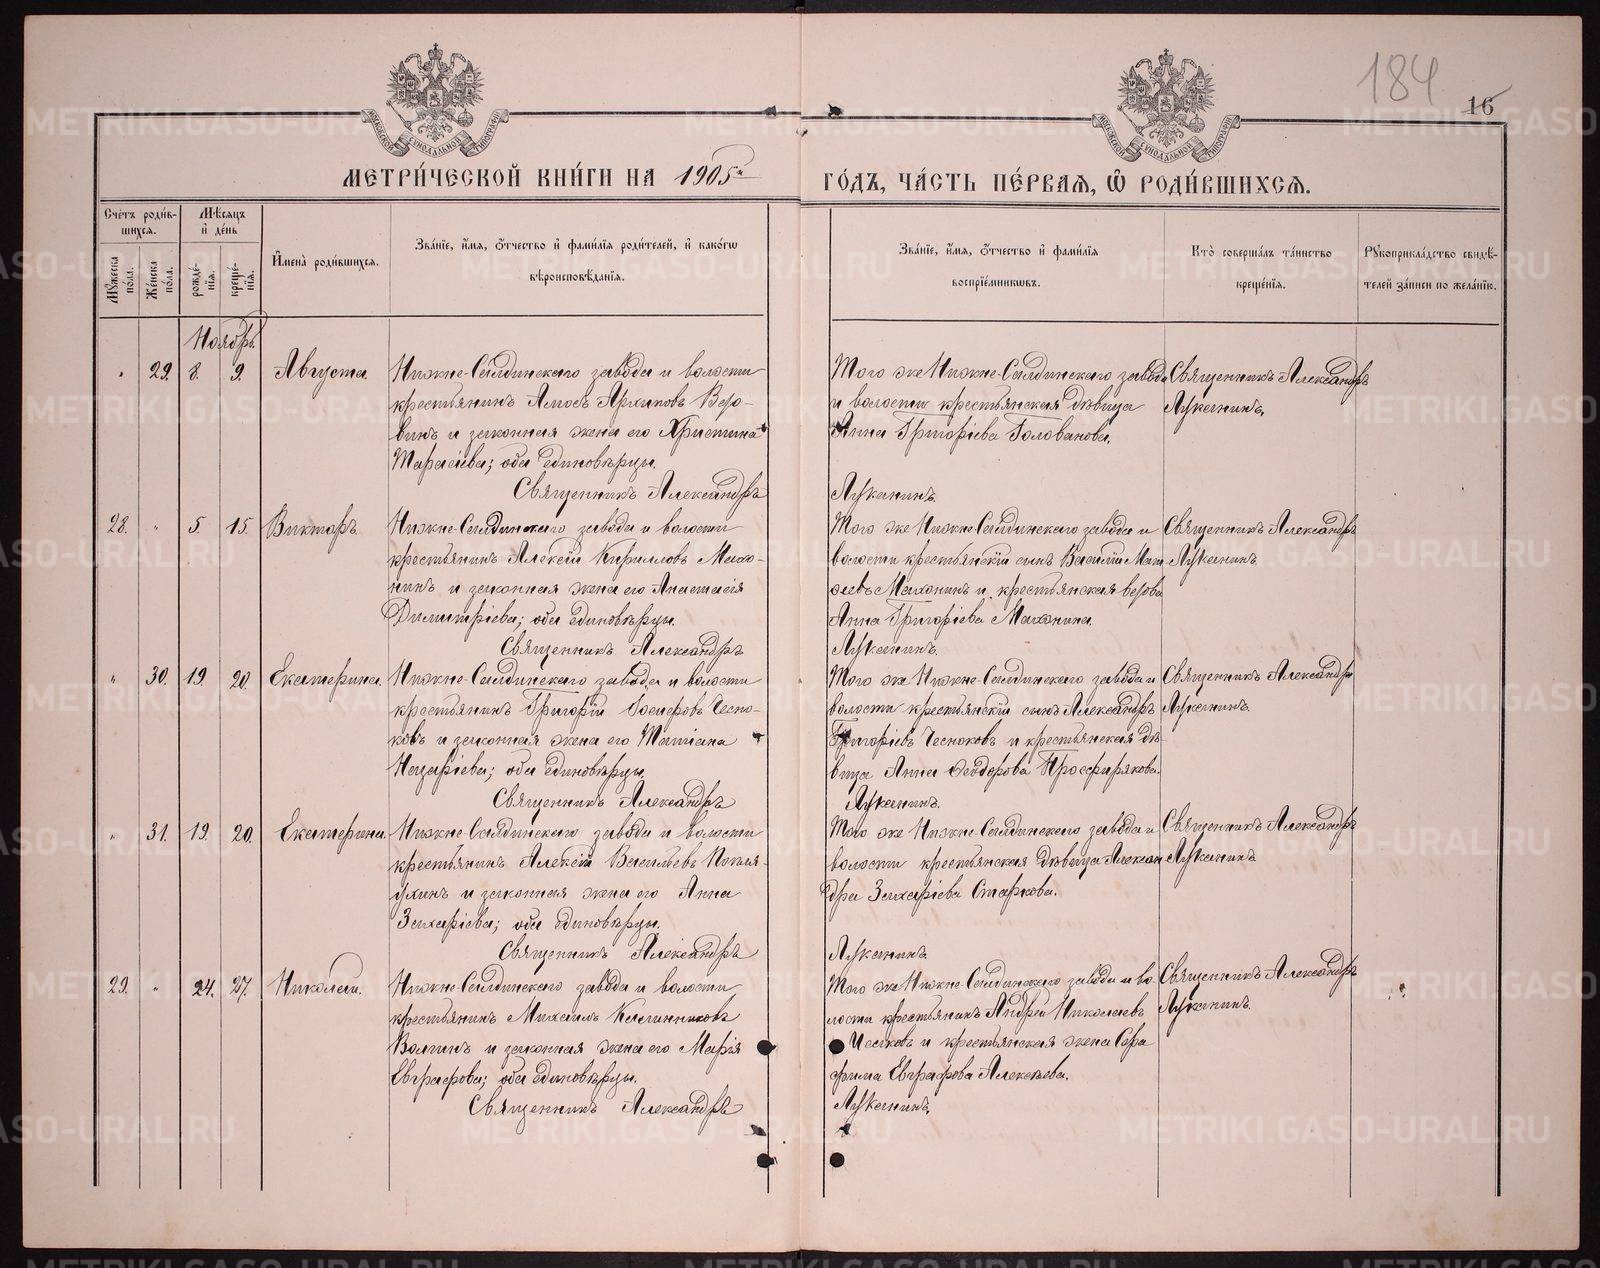 184
16
МЕТРИ́ЧЕСКОЙ КНИ́ГИ НА 1905й
ГО́ДЪ, ЧА́СТЬ ПЕ́РВАЯ, Ѽ РОДИ́ВШИХСЯ.
Сче́тъ роди́в-
шихся.
Мѣ́сяцъ
и҆ де́нь
Му́жеска по́ла.
Же́нска по́ла.
рожде́-
нїя.
креще́-
нїя.
И҆мена̀ роди́вшихся.
Зва́нїе, и҆́мя, ѻ҆́тчество и҆ фами́лїя роди́телей, и҆ како́гѡ
вѣроисповѣ́данїя.
Зва́нїе, и҆́мя, ѻ҆́тчество и҆ фами́лїя
воспрїе́мникѡвъ.
Кто̀ соверша́лъ та́инство
креще́нїя.
Рꙋкоприкла́дство свидѣ́-
телей за́писи по жела́нїю.
Ноябрь.
" 29. 8. 9. Августа.
Нижне-Салдинскаго завода и волости
крестьянинъ Амосъ Архиповъ Веро-
винъ и законная жена его Христина
Тарасіева; оба единовѣрцы.
Священникъ Александръ
Того же Нижне-Салдинскаго завода
и волости крестьянская дѣвица
Анна Григоріева Голованова.
Луканинъ.
Священникъ Александръ
Луканинъ.
28. " 5. 15. Викторъ.
Нижне-Салдинскаго завода и волости
крестьянинъ Алексій Кирилловъ Махо-
нинъ и законная жена его Анастасія
Димитріева; оба единовѣрцы.
Священникъ Александръ
Того же Нижне-Салдинскаго завода и
волости крестьянскій сынъ Василій Мат-
ѳеевъ Махонинъ и крестьянская вдова
Анна Григоріева Махонина.
Луканинъ.
Священникъ Александръ
Луканинъ.
" 30. 19. 20. Екатерина.
Нижне-Салдинскаго завода и волости
крестьянинъ Григорій Іосифовъ Чесно-
ковъ и законная жена его Татіана
Назаріева; оба единовѣрцы.
Священникъ Александръ
Того же Нижне-Салдинскаго завода и
волости крестьянскій сынъ Александръ
Григоріевъ Чесноковъ и крестьянская дѣ-
вица Анна Ѳеодорова Просфирякова.
Луканинъ.
Священникъ Александръ
Луканинъ.
" 31. 19. 20. Екатерина.
Нижне-Салдинскаго завода и волости
крестьянинъ Алексій Васильевъ
и законная жена его Анна
Захаріева; оба единовѣрцы.
Священникъ Александръ
Того же Нижне-Салдинскаго завода и
волости крестьянская дѣвица Алексан-
дра Захаріева Старкова.
Луканинъ.
Священникъ Александръ
Луканинъ.
29. " 24. 27. Николай.
Нижне-Салдинскаго завода и волости
крестьянинъ Михаилъ Каллинниковъ
Волгинъ и законная жена его Марія
Евграфова; оба единовѣрцы.
Священникъ Александръ
Того же Нижне-Салдинскаго завода и во-
лости крестьянинъ Андрей Николаевъ
и крестьянская жена Сера-
фима Евграфова Алексѣева.
Луканинъ.
Священникъ Александръ
Луканинъ.
METRIKI.GASO-URAL.RU